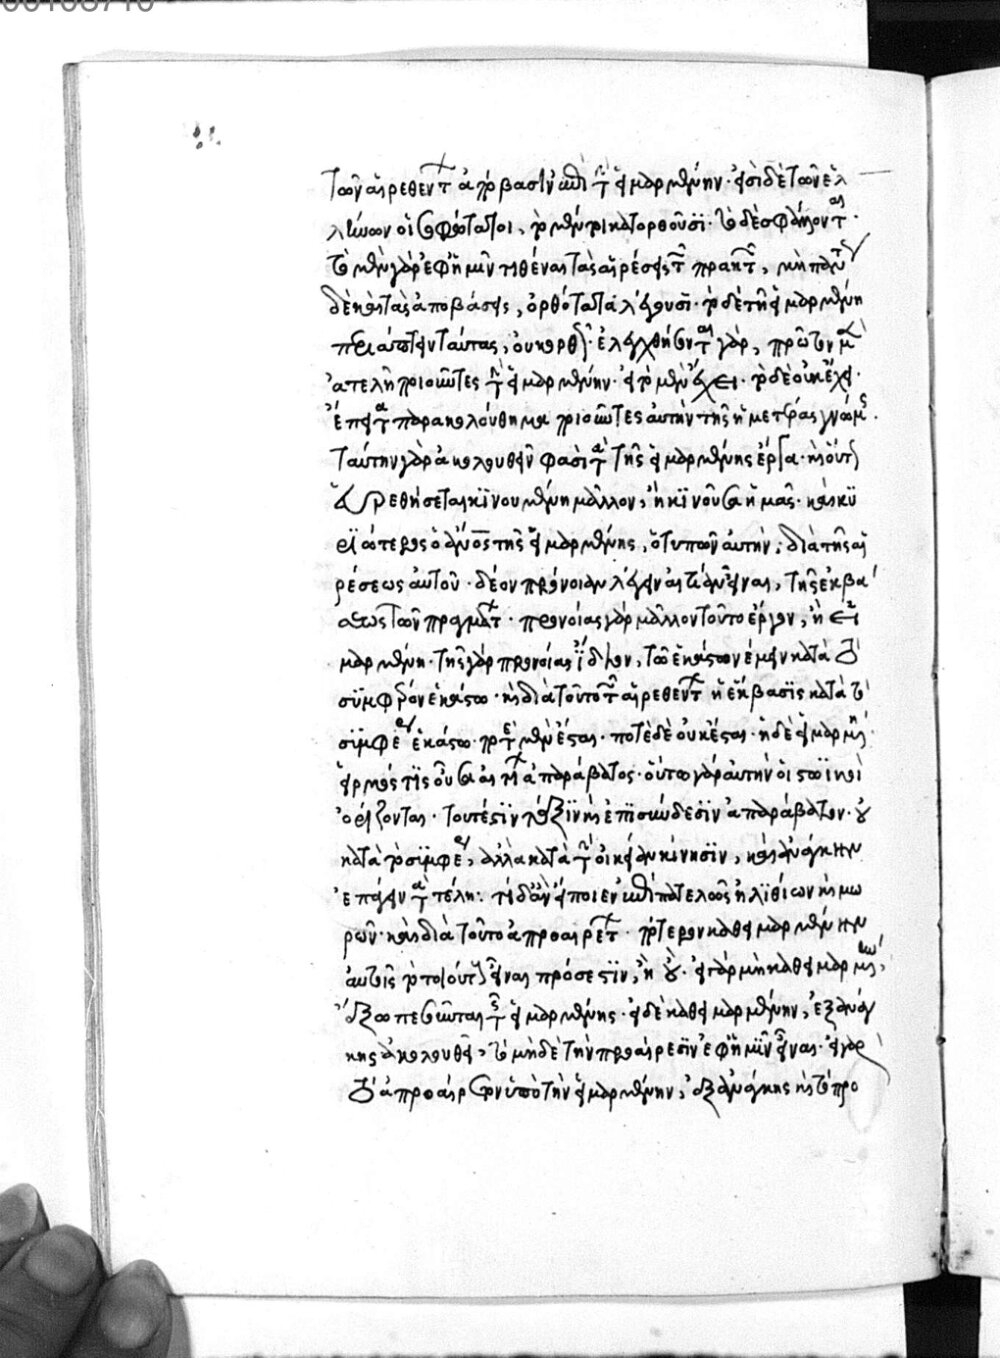 τῶν αἱρεθέντων ἀπόβασιν ἐπὶ τὴν εἱμαρμένην· εἰσὶ δὲ τῶν ἑλ
λήνων οἱ σοφώτατοι, τὸ μέν τι κατορθοῦσι· τὸ δὲ σφάλλονται·
τὸ μὲν γὰρ ἐφ' ἡμῖν τιθέναι τὰς αἱρέσεις τῶν πρακτῶν, μὴ πάντως
δὲ καὶ τὰς ἀποβάσεις, ὀρθότατα λέγουσι· τὸ δὲ τῆ εἱμαρμένη
περιάπτειν ταύτας, οὐκ ὀρθῶς· ἐλεγχθήσονται γὰρ, πρῶτον μὲν
ἀτελῆ ποιοῦντες τὴν εἱμαρμένην· εἰ τὸ μὲν ἔχει· τὸ δὲ οὐκ ἔχει·
ἔπειτα παρακολούθημα ποιοῦντες αὐτὴν τῆς ἡμετέρας γνώμης.
ταύτην γὰρ ἀκολουθεῖν φασὶ τὰ τῆς εἱμαρμένης ἔργα· καὶ οὕτως
εὑρεθήσεται κινουμένη μᾶλλον, ἢ κινοῦσα ἡμᾶς· καὶ κυ
ριώτερος ὁ ἄνος τῆς εἱμαρμένης, ὁ τυπῶν αὐτὴν, διὰ τῆς αἱ
ρέσεως αὐτοῦ· δέον πρόνοιαν λέγειν αἰτίαν εἶναι, τῆς ἐκβά
σεως τῶν πραγμάτων· προνοίας γὰρ μᾶλλον τοῦτο ἔργον, ἢ εἱ
μαρμένη· τῆς γὰρ προνοίας ἴδιον, τῶ ἑκάστων νέμειν κατὰ τὸ
σύμφερον ἑκάστω· καὶ διὰ τοῦτο τῶν αἱρεθέντων ἡ ἔκβασις κατὰ τὸ
συμφέρον ἑκάστω· ποτὲ μὲν ἔσται· ποτὲ δὲ οὐκ ἔσται· ἡ δὲ εἱμαρμένη
εἱρμός τις οὖσα αἰτιῶν ἀπαράβατος· οὕτω γὰρ αὐτὴν οἱ στωϊκοὶ
ὁρίζονται· τουτέστιν τάξιν καὶ ἐπισύνδεσιν ἀπαράβατον· οὐ
κατὰ τὸ συμφέρον, ἀλλὰ κατὰ τὴν οἰκείαν κίνησιν, καὶ ἀνάγκην
ἐπάγειν τὰ τέλη· τί δ' ἂν εἴποιεν ἐπὶ παντελῶς ἠλιθίων καὶ μω
ρῶν· καὶ διὰ τοῦτο ἀπροαιρέτων· πότερον καθ' εἱμαρμένην
αὐτοῖς τὸ τοιούτοις εἶναι πρόσεστιν, ἢ οὔ· εἰ γὰρ μὴ καθ' εἱμαρμένην,
ἔξω πεσοῦνται τῆς εἱμαρμένης· εἰ δὲ καθ' εἱμαρμένην, ἐξ ἀνάγ
κης ἀκολουθεῖ, τὸ μηδὲ τὴν προαίρεσιν ἐφ' ἡμῖν εἶναι· εἰ γὰρ
τὸ ἀπροαίρετον ὑπὸ τὴν εἱμαρμένην, ἐξ ἀνάγκης καὶ τὸ προ